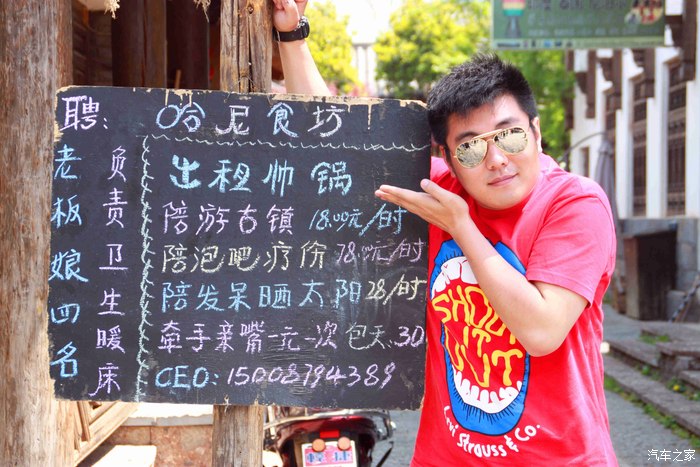 聘:
老板娘四名
负责卫生暖床
哈尼食坊
出租帅锅
陪游古镇 18.00元/时
陪泡吧疗份 78.00元/时
陪发呆晒太阳 28/时
牵手亲嘴一元一次 包天:30
CEO: 15008794389
SHOUT
IT
OUT
Levi Strauss & Co.
汽车之家